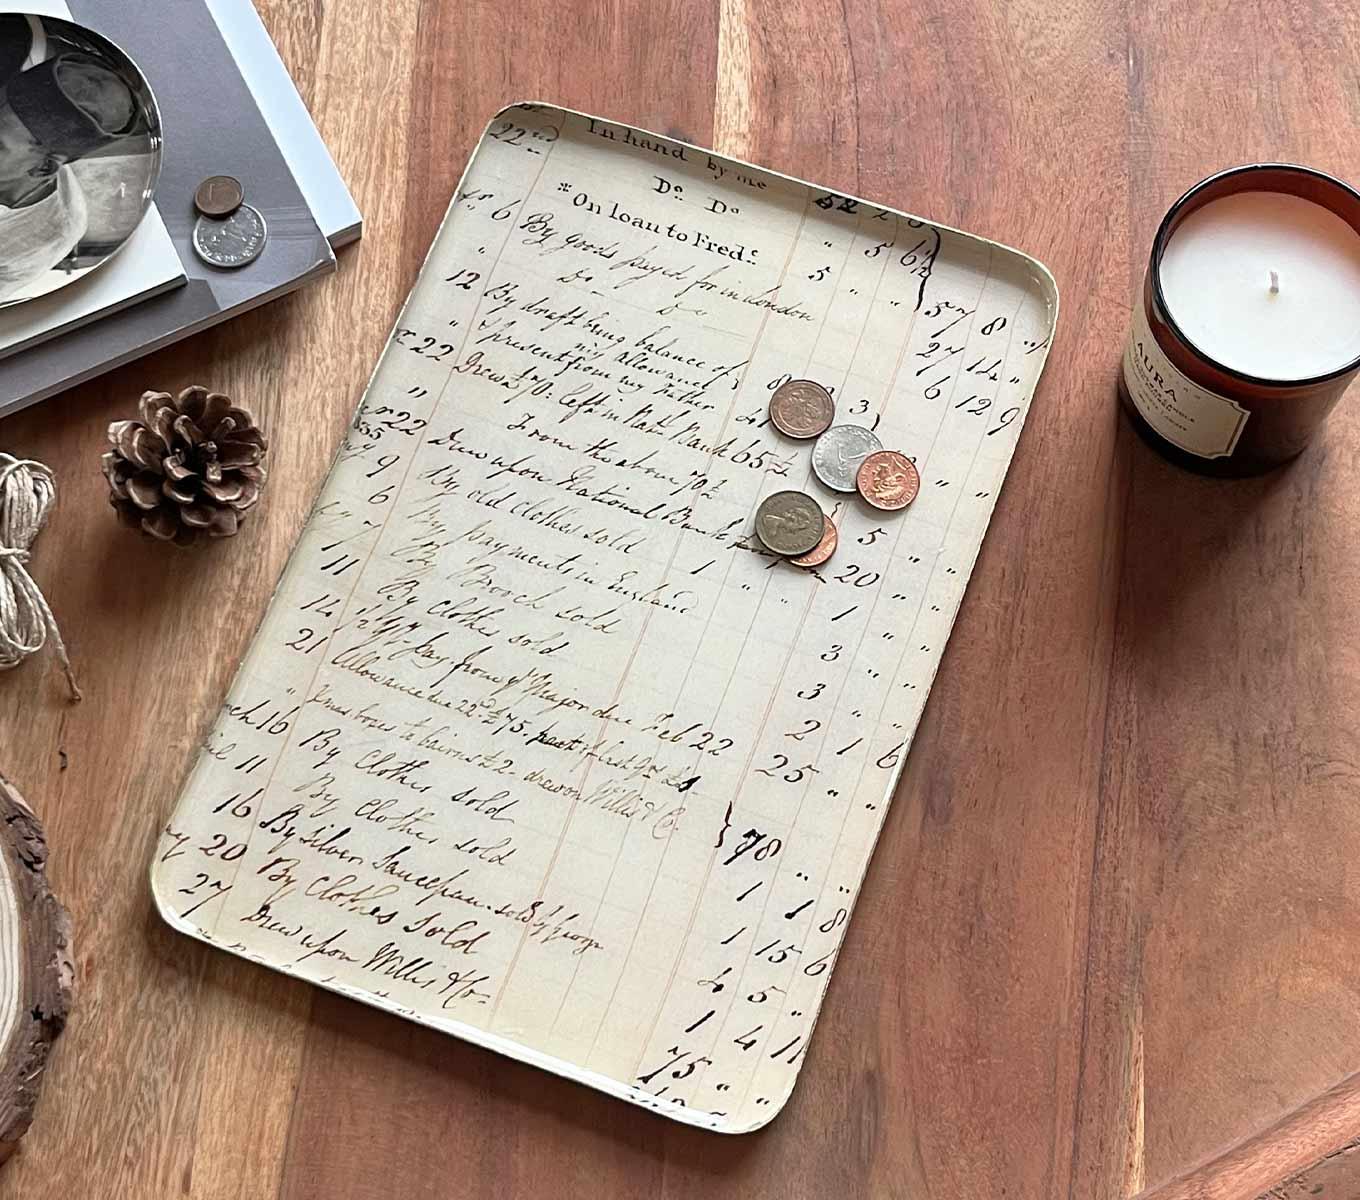 22nd In hand by me 52 2 6
Do. Do. " 5 6½
* On loan to Fredc. 5 " "
6 By goods payed for in London 57 8 "
" Do — Do — 27 14 "
12 By draft being balance of my allowance 6 12 9
" present from my Father
22 Drew £70: left in Natl. Bank 65
" From the above 70£ 5 " "
22 Drew upon National Bank 20 " "
9 By old Clothes sold 1 " "
6 By payments in England 3 " "
7 By Brooch sold 3 " "
11 By Clothes sold 2 1 6
14 pay from yr. Major due Feb 22 25 " "
21 Allowance due 22nd £75. part of last
" Xmas boxes to bairns £2 - drew on Willis & Co. 78 " "
16 By Clothes sold 1 1 8
11 By Clothes sold 1 15 6
16 By Silver Saucepan sold 4 5 "
20 By Clothes Sold 1 4 11
27 Drew upon Willis & Co. 75 " "
AURA